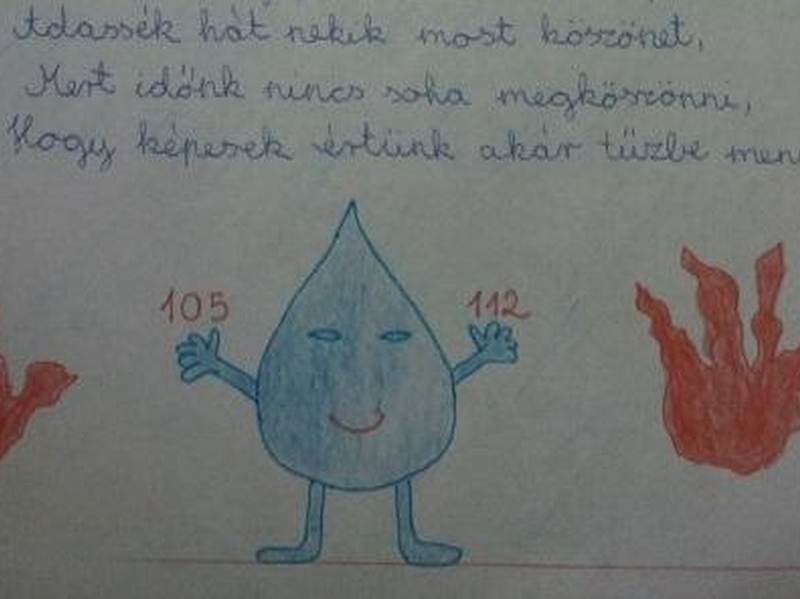 Adassék hát nekik most köszönet,
Mert időnk nincs soha megköszönni,
Hogy képesek értünk akár tűzbe men
105
112